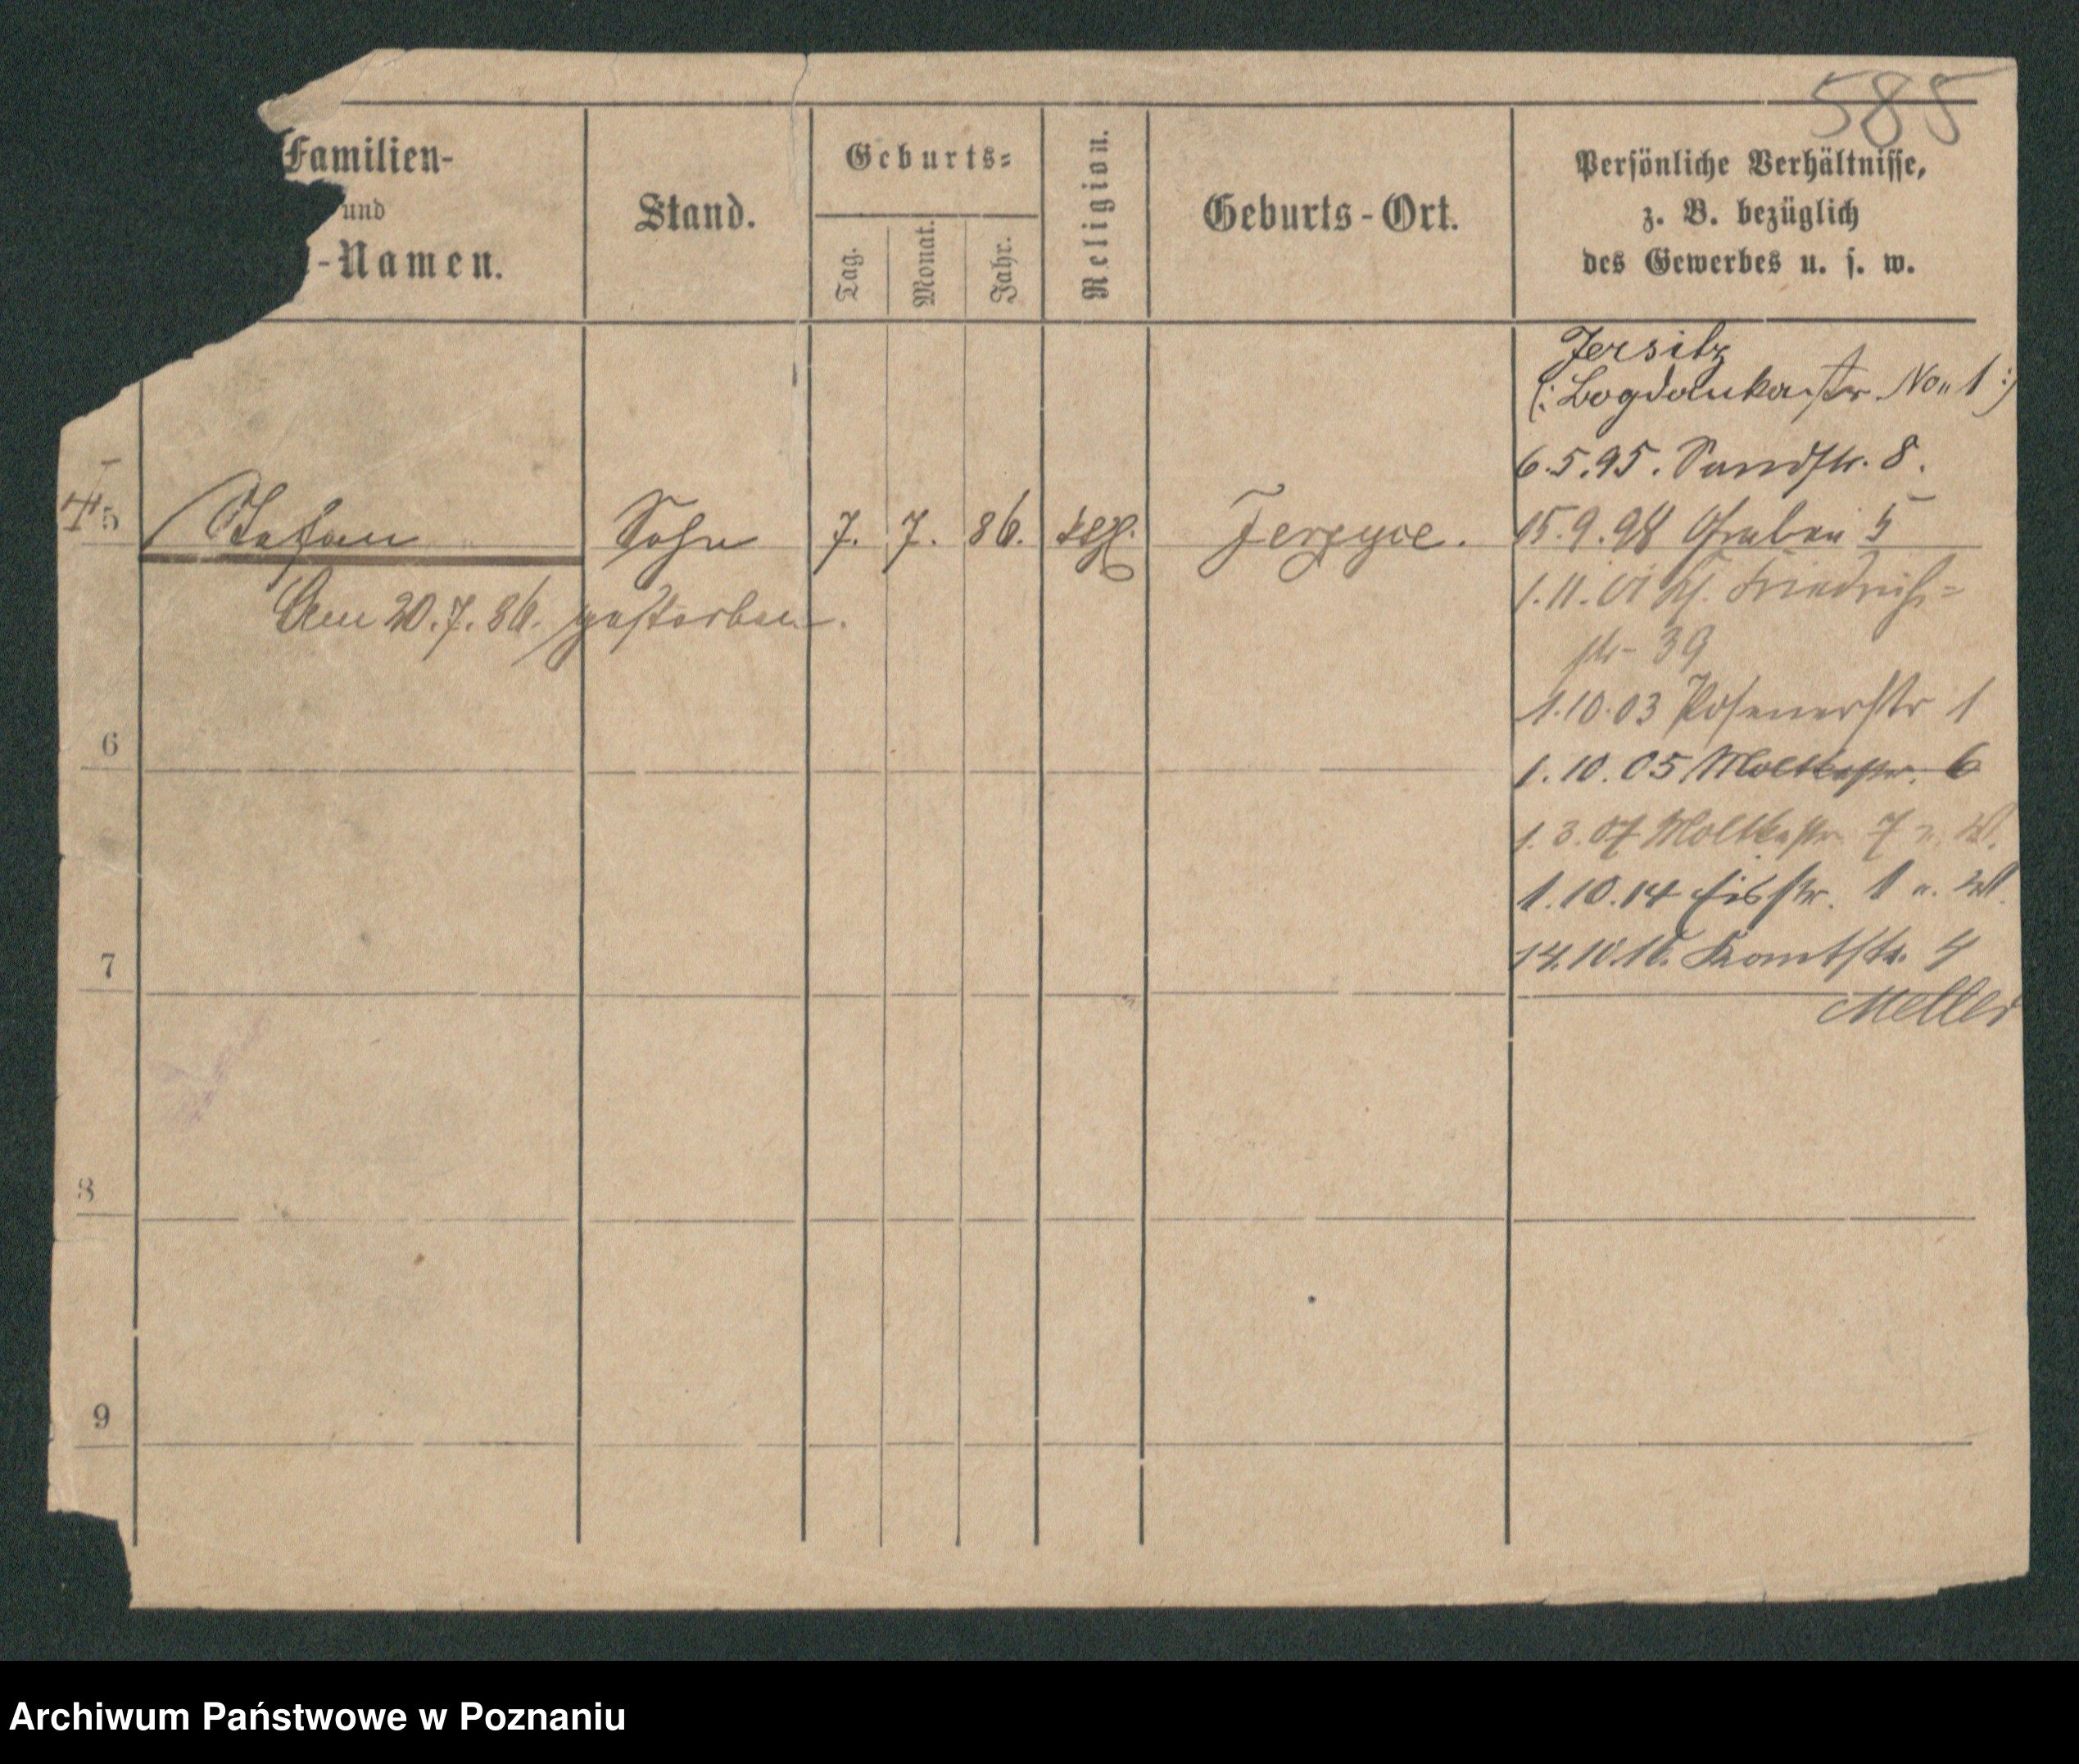 585
Familien-
und
-Namen.
Stand.
Geburts-
Tag.
Monat.
Jahr.
Religion.
Geburts-Ort.
Persönliche Verhältnisse,
z. B. bezüglich
des Gewerbes u. s. w.
Jersitz
(: Bogdankastr No 1 :)
6.5.95. Sandstr. 8.
5 Stefan Sohn 7. 7. 86. Jerzyce. 15.9.98 Graben 5
Am 20.7.86. gestorben.
1.11.01 Kl. Friedrich-
str 39
1.10.03 Posenerstr 1
6
1.10.05 Moltkestr. 6
1.3.07 Moltkestr. 7
1.10.14 Eisstr. 1
7
14.10.16. Kantstr. 4
8
9
Archiwum Państwowe w Poznaniu